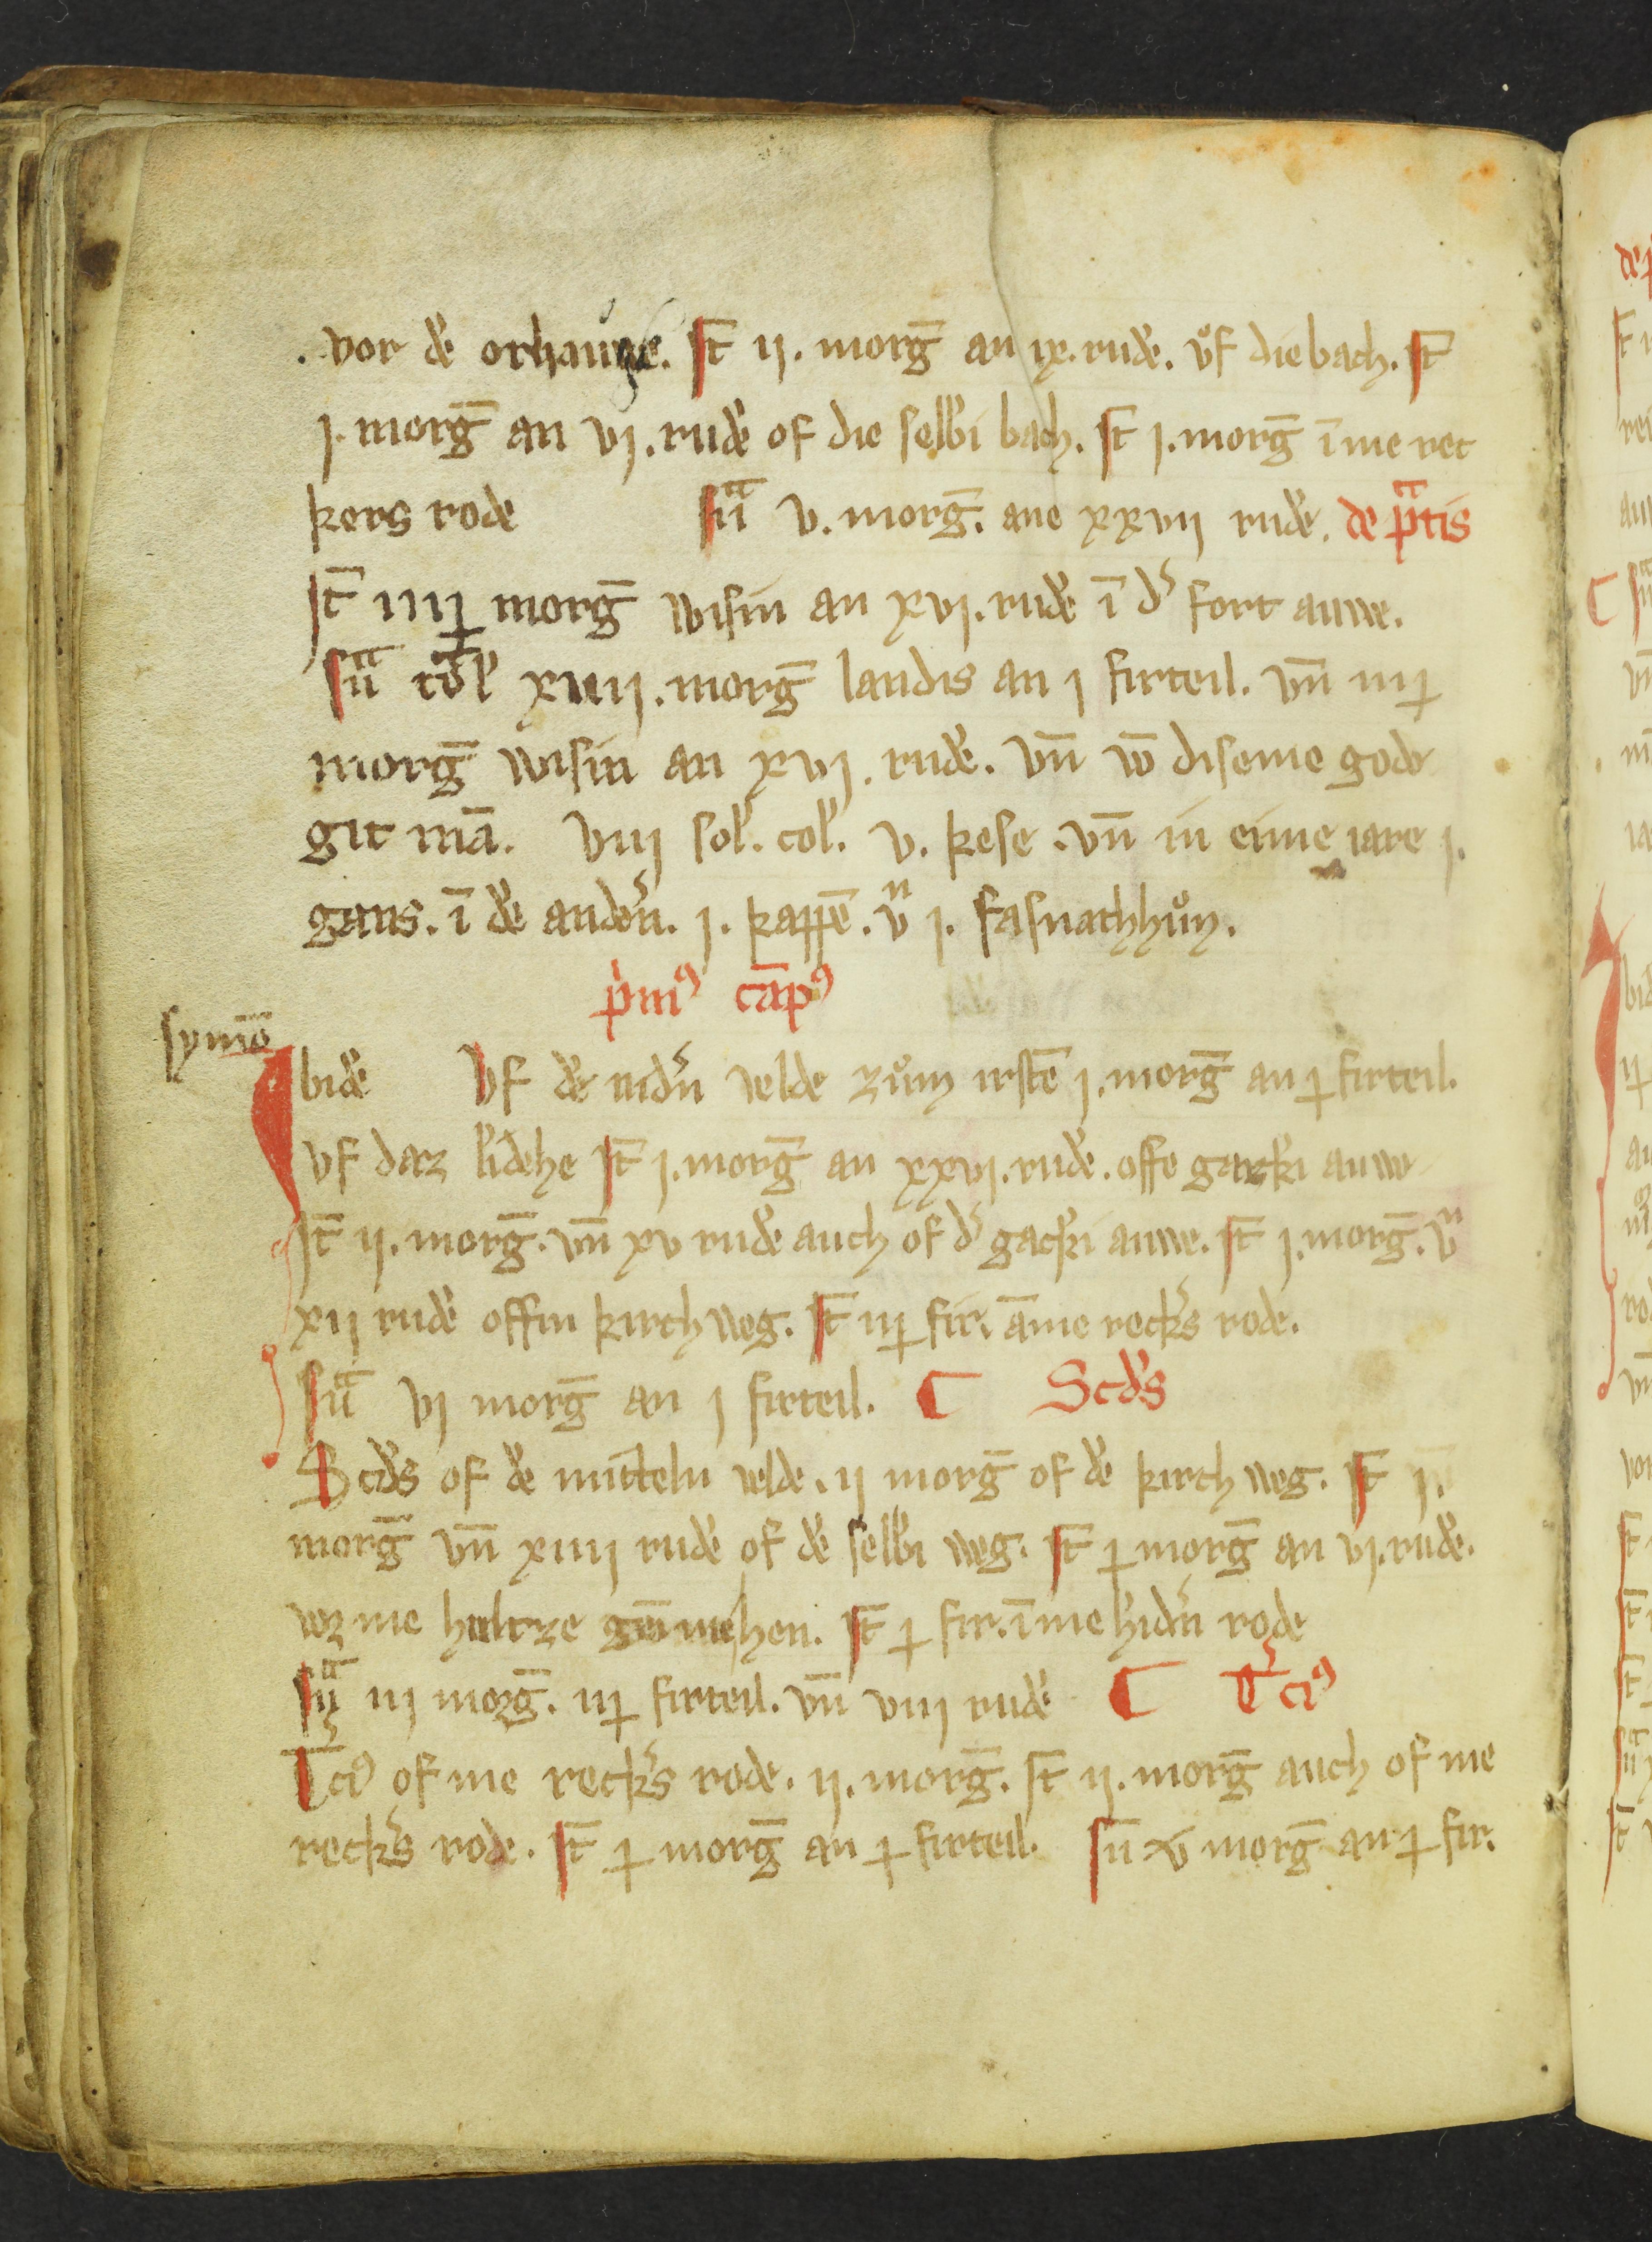 . vor dē orhauge. st̄ ij. morḡ an ix. rudē. vͦf die bach. st̄
j. morḡ an vj. rudē of die selbi bach. st̄ j. morḡ īme rec
kers rode sūᵃ v. morḡ. ane xxvij rudē. de pᵃtis
st̄ iiij morḡ wisin an xvj. rudē ī d' fort auwe.
sūᵃ to̅l xiiij. morḡ landis an j firteil. vn̄ iiij
morḡ wisin an xvj. rudē. vn̄ vō diseme gode
git mā. viij sol. col. v. kese. vn̄ in eime iare j.
gans. ī dē anden̄. j. kappē. vⁿ j. fasnathhuͦn.
pⁱmꝰ cāpꝰ
symō
Ibidē Vf dē nid'n velde zuͦm irstē j. morḡ an j firteil.
vf daz lidehe st̄ j. morḡ an xxvj. rudē. offe gacki auwe
st̄ ij. morḡ. vn̄ xv rudē auch of d' gacki auwe. st̄ j. morḡ. vⁿ
xij rudē offin kirch weg. st̄ iij fir. āme reck's rode.
sūᵃ vj morḡ an j firteil. ¶ Scd's
Scd's of dē mitteln velde. ij morḡ of dē kirch weg. st̄ j.
morḡ vn̄ xiiij rudē of dē selbi weg. st̄ j morḡ an vj. rudē.
vorme hultze st̄ j fir. īme hid'n rode
sūᵃ iij morḡ. iij firteil. vn̄ viij rudē ¶ T'ciꝰ
T'ciꝰ of me reck's rode. ij. morḡ. st̄ ij. morḡ auch of me
reck's rode. st̄ j morḡ an j firteil. sū v morḡ an j fir.